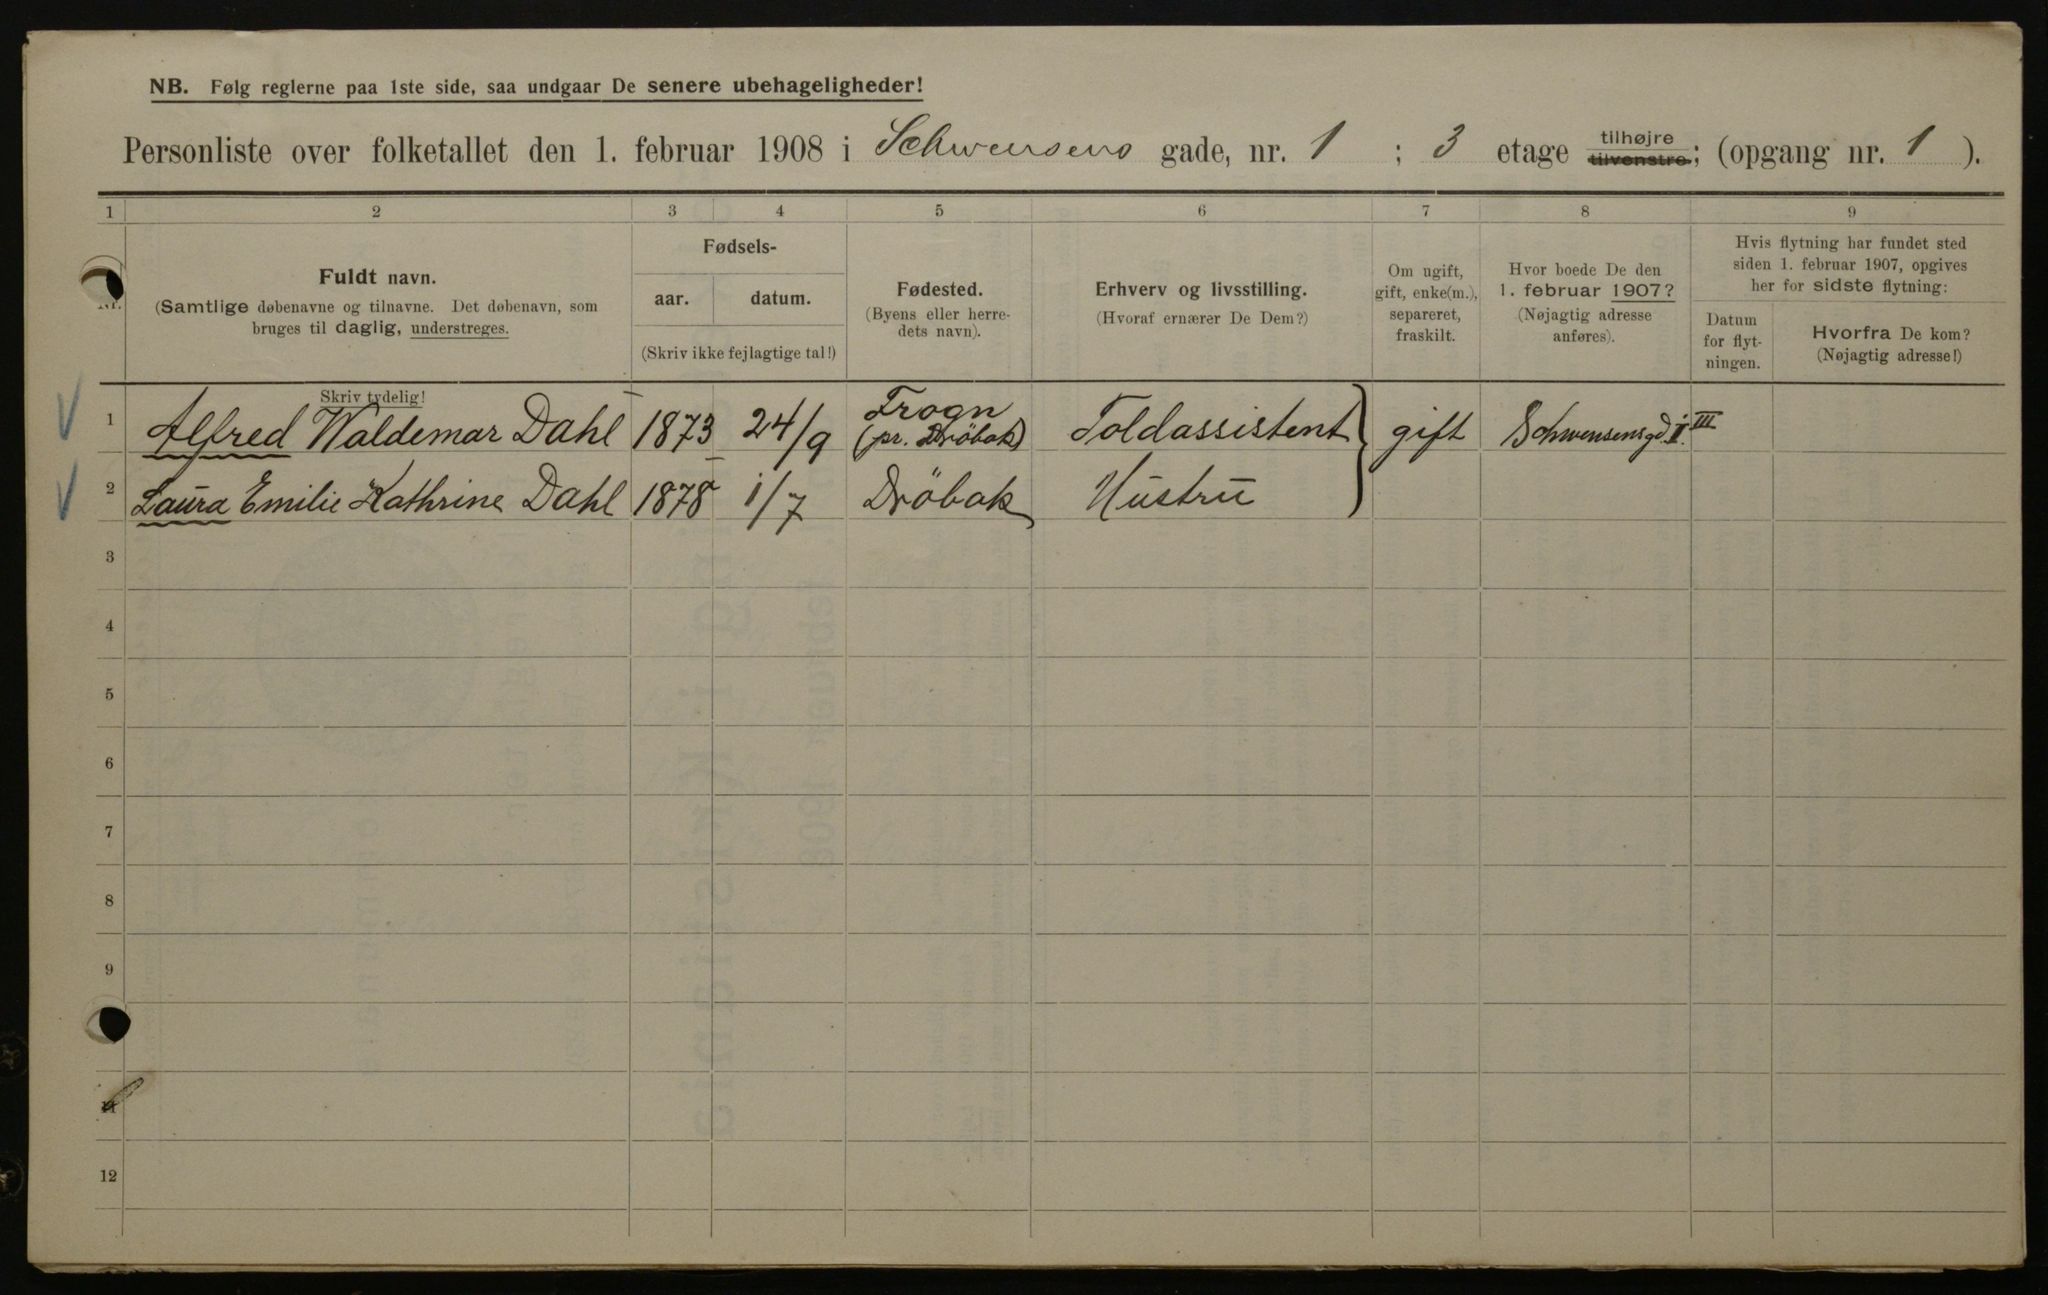 NB. Følg reglerne paa 1ste side, saa undgaar De senere ubehageligheder!
Personliste over folketallet den 1. februar 1908 i Schwensens gade, nr. 1 ; 3 etage tilhøjre tilvenstre; (opgang nr. 1 ).
1 2 3 4 5 6 7 8 9
Nr.
Fuldt navn.
(Samtlige døbenavne og tilnavne. Det døbenavn, som
bruges til daglig, understreges.
Skriv tydelig!
Fødsels-
aar. datum.
(Skriv ikke fejlagtige tal!)
Fødested.
(Byens eller herre-
dets navn).
Erhverv og livsstilling.
(Hvoraf ernærer De Dem?)
Om ugift,
gift, enke(m.),
separeret,
fraskilt.
Hvor boede De den
1. februar 1907?
(Nøjagtig adresse
anføres).
Hvis flytning har fundet sted
siden 1. februar 1907, opgives
her for sidste flytning:
Datum
for flyt-
ningen.
Hvorfra De kom?
(Nøjagtig adresse!)
1 Alfred Waldemar Dahl 1873 24/9 Frogn (pr. Dröbak) Toldassistent gift Schwensensgd. 1. III
2 Laura Emilie Kathrine Dahl 1878 1/7 Dröbak Hustru
3
4
5
6
7
8
9
11
12